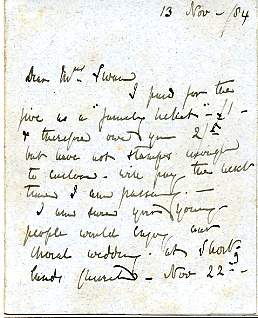 13 Nov - /84
Dear Mrs Swan
I paid for the
five as a "family ticket" - 21/-
& therefore owe you 2/-
but have not stamps enough
to enclose - will pay the next
time I am passing. -
I am sure your young
people would enjoy our
choral wedding - at Short-
lands Church - Nov 22nd -